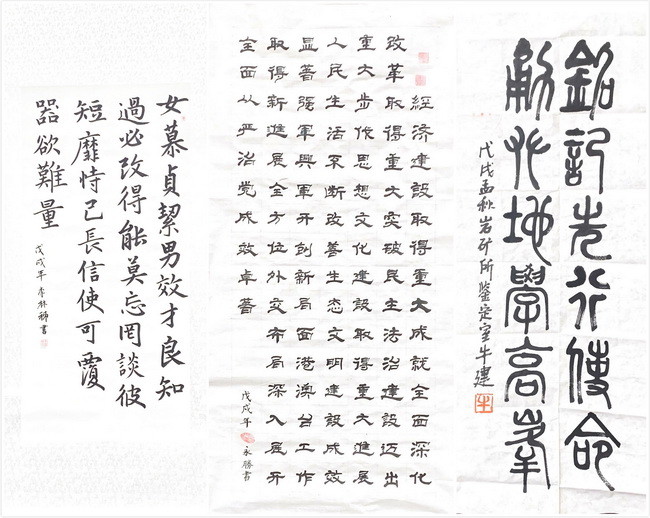 女慕貞絜男效才良知
過必改得能莫忘罔談彼
短靡恃己長信使可覆
器欲難量
戊戌年 李林書
經济建設取得重大成就全面深化
改革取得重大突破民主法治建設迈出
重大步伐思想文化建設取得重大進展
人民生活不断改善生态文明建設成效
显著强軍興軍开創新局面港澳台工作
取得新進展全方位外交布局深入展开
全面从严治党成效卓著
戊戌年 永勝書
銘記先行使命
勇攀地學高峯
戊戌孟秋岩矿所鉴定室牛建
牛